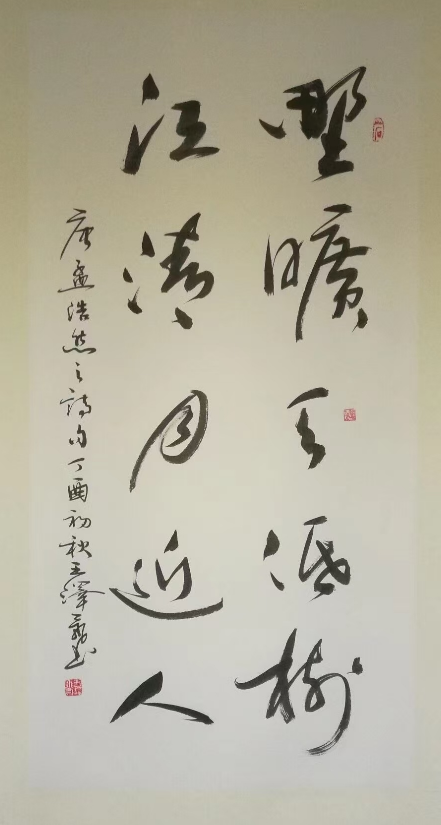 野曠天低樹
江清月近人
唐孟浩然之詩句丁酉初秋王澤書